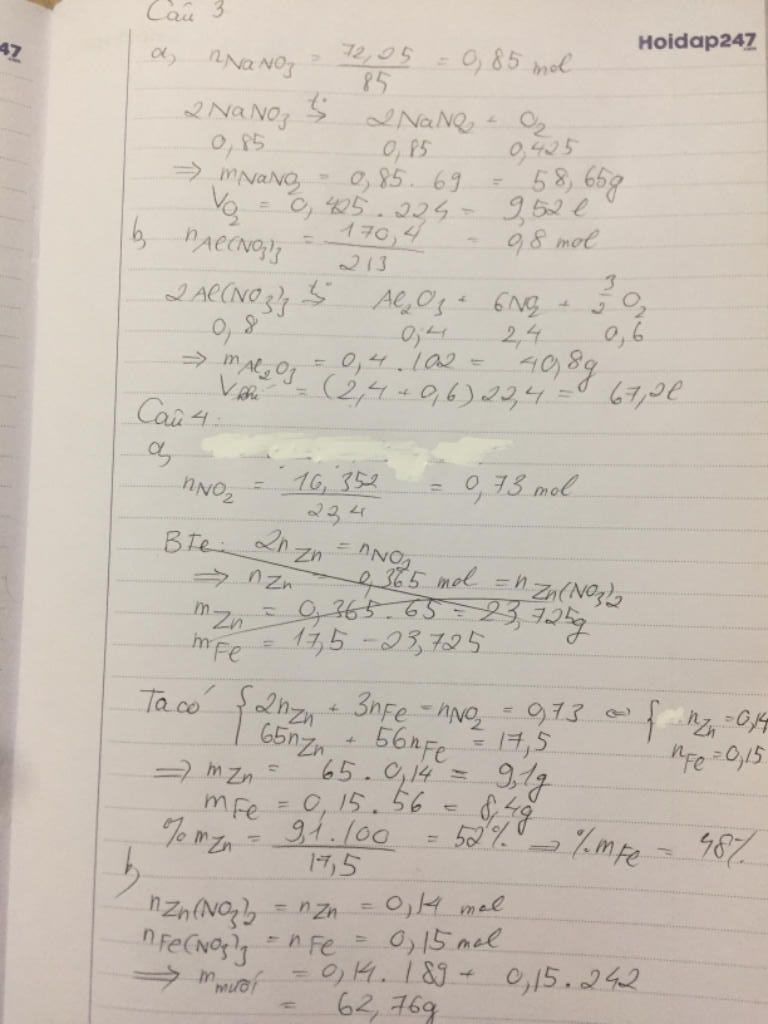 Câu 3
47
Hoidap247
a, nNaNO3 = 72,25/85 = 0,85 mol
2NaNO3 t°→ 2NaNO2 + O2
0,85 0,85 0,425
=> mNaNO2 = 0,85 . 69 = 58,65g
VO2 = 0,425 . 22,4 = 9,52 l
b, nAl(NO3)3 = 170,4/213 = 0,8 mol
2Al(NO3)3 t°→ Al2O3 + 6NO2 + 3/2 O2
0,8 0,4 2,4 0,6
=> mAl2O3 = 0,4 . 102 = 40,8g
Vkhí = (2,4 + 0,6) 22,4 = 67,2l
Câu 4.
a,
nNO2 = 16,352/22,4 = 0,73 mol
BTe: 2nZn = nNO2
=> nZn = 0,365 mol = nZn(NO3)2
mZn = 0,365 . 65 = 23,725g
mFe = 17,5 - 23,725
Ta có { 2nZn + 3nFe = nNO2 = 0,73 ⇔ { nZn = 0,14
65nZn + 56nFe = 17,5 nFe = 0,15
=> mZn = 65 . 0,14 = 9,1g
mFe = 0,15 . 56 = 8,4g
%mZn = 9,1 . 100/17,5 = 52% => %mFe = 48%
b,
nZn(NO3)2 = nZn = 0,14 mol
nFe(NO3)3 = nFe = 0,15 mol
=> mmuối = 0,14 . 189 + 0,15 . 242
= 62,76g